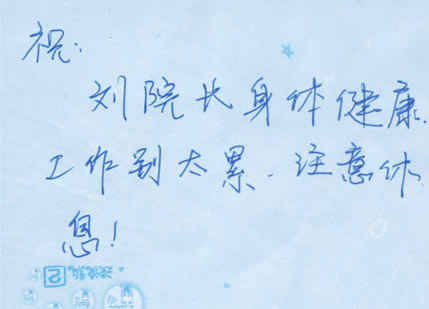 祝:
刘院长身体健康.
工作别太累.注意休
息!